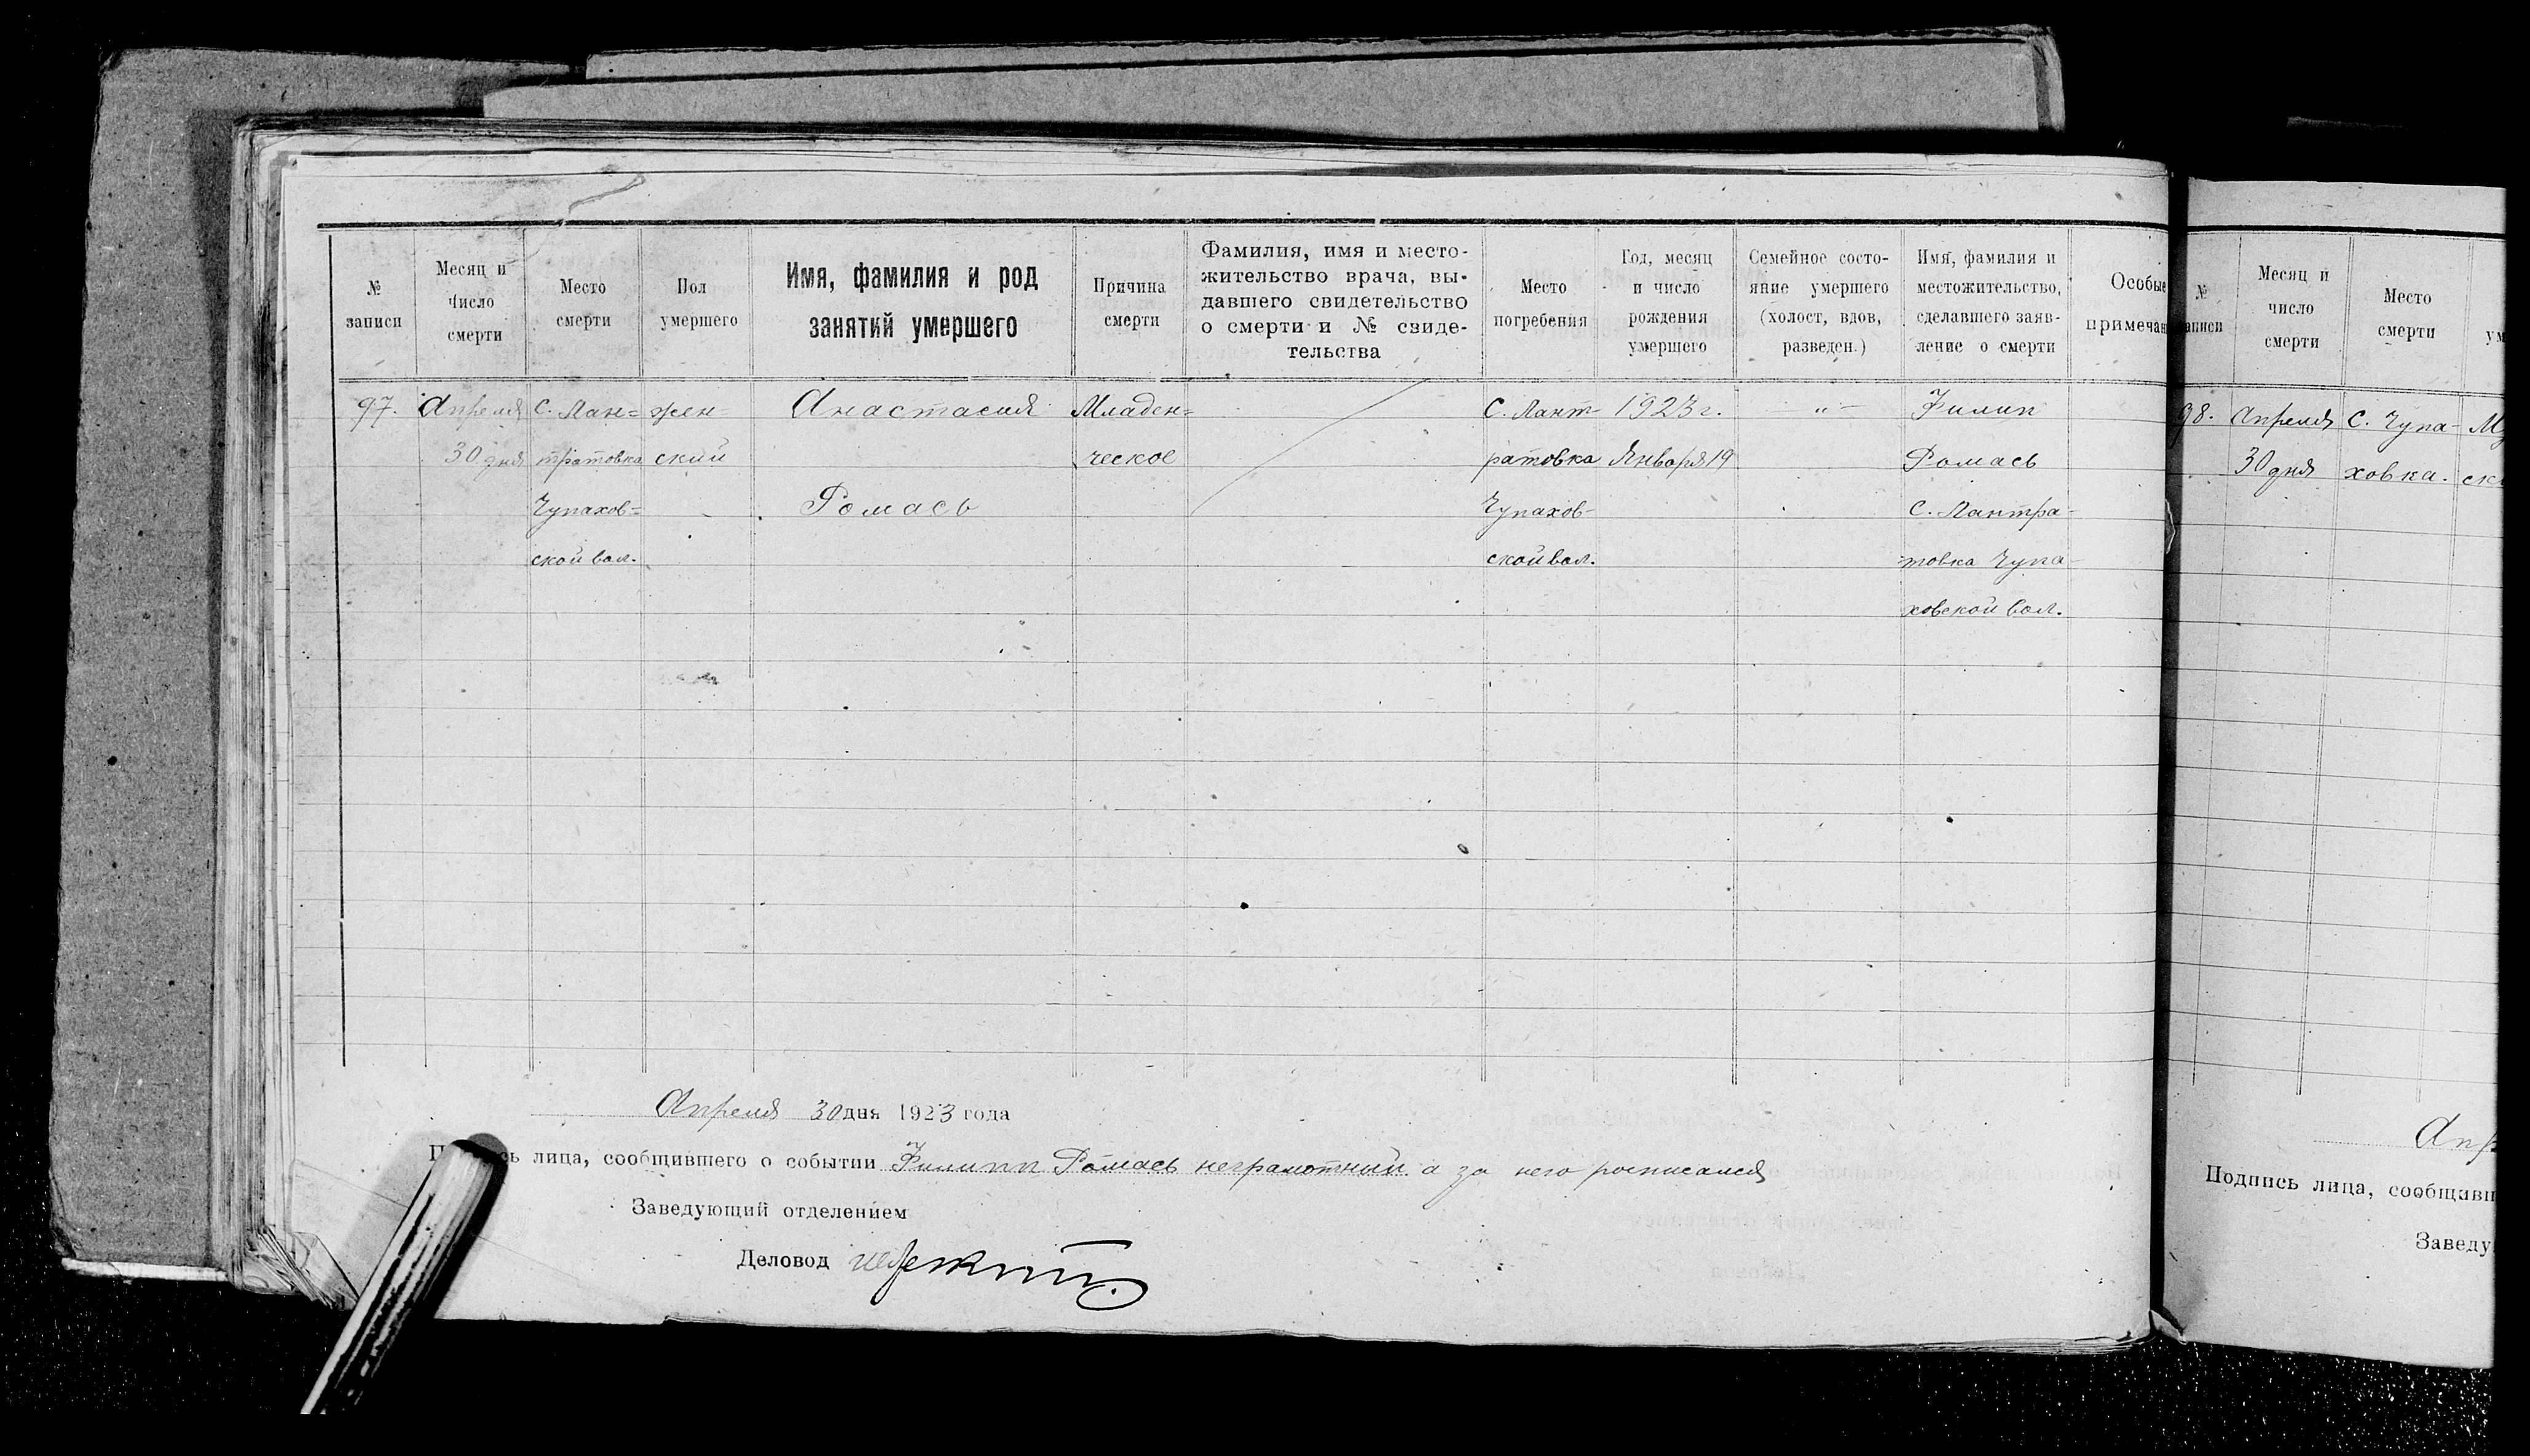 № записи
Месяц и число смерти
Место смерти
Пол умершего
Имя, фамилия и род занятий умершего
Причина смерти
Фамилия, имя и место-
жительство врача, вы-
давшего свидетельство
о смерти и № свиде-
тельства
Место погребения
Год, месяц и число рождения умершего
Семейное состо-
яние умершего
(холост, вдов,
разведен.)
Имя, фамилия и
местожительство,
сделавшего заяв-
ление о смерти
Особые
примечан
97. Апреля С. Лан= жен- Анастасия Младен= С. Лант- 1923 г. " — Филип
30 дня тратовка ский ческое ратовка Января 19 Ромась
Чупахов= Ромась Чупахов- С. Лантра-
ской вол. ской вол. товка Чупа-
ховской вол.
Апреля 30 дня 1923 года
сь лица, сообщившего о событии Филипп Ромась неграмотный а за него росписался
Заведующий отделением
Деловод
№
записи
Месяц и
число
смерти
Место
смерти
ум
98. Апреля С. Чупа- Му
30 дня ховка. ск
Апр
Подпись лица, сообщивш
Заведу